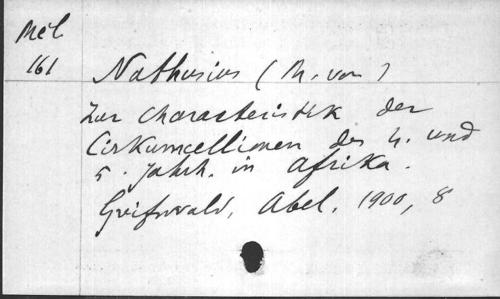 Mél
161
Nathusius (M. von)
Zur Charasteristik der
Cirkumcellionen des 4. und
5. Jahrh. in Afrika.
Greifswald, Abel, 1900, 8